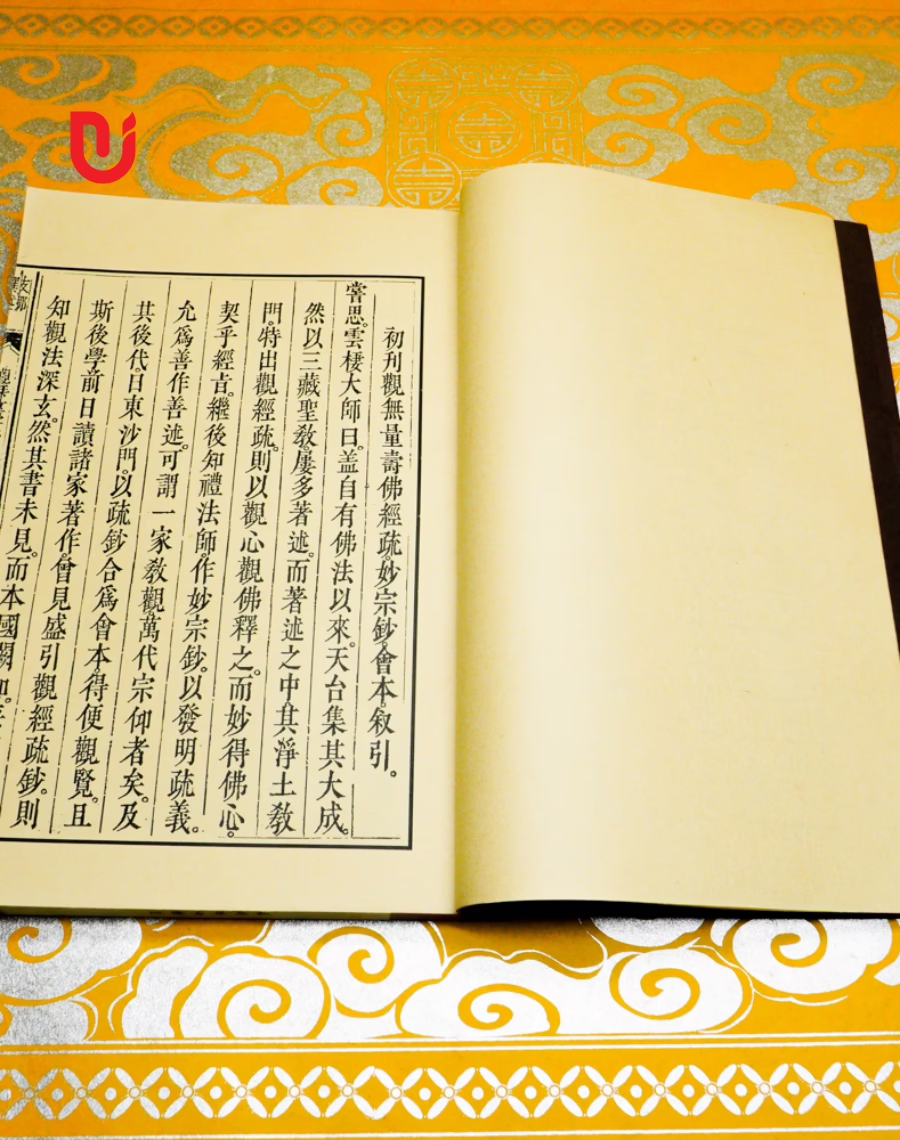 初刊觀無量壽佛經疏。妙宗鈔。會本。叙引。
嘗思。雲棲大師曰。盖自有佛法以來。天台集其大成。
然以三藏聖教。屢多著述。而著述之中。其淨土教
門。特出觀經疏。則以觀心觀佛釋之。而妙得佛心。
契乎經旨。繼後知禮法師。作妙宗鈔。以發明疏義。
允爲善作善述。可謂一家教觀。萬代宗仰者矣。及
其後代。日東沙門。以疏鈔合爲會本。得便觀覽。且
斯後學前日讀諸家著作。曾見盛引觀經疏鈔。則
知觀法深玄。然其書未見。而本國